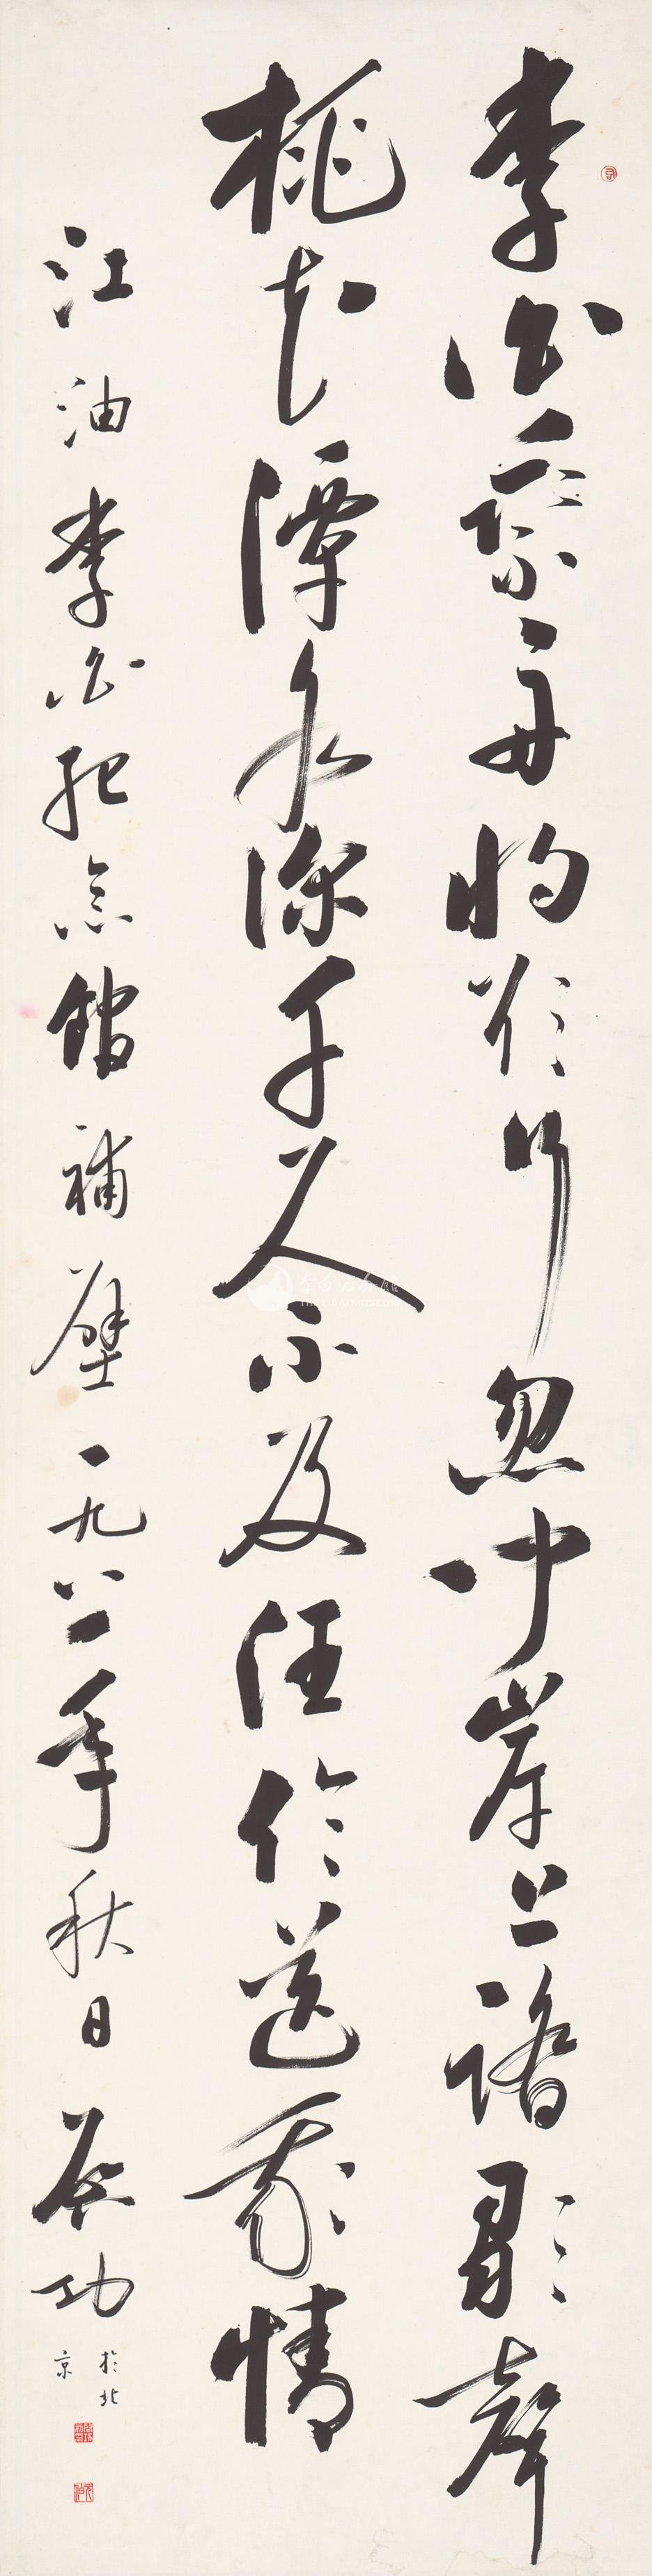 李白乘舟將欲行忽聞岸上踏歌聲
桃花潭水深千尺不及汪倫送我情
江油李白紀念館補壁一九八一年秋日启功於北京